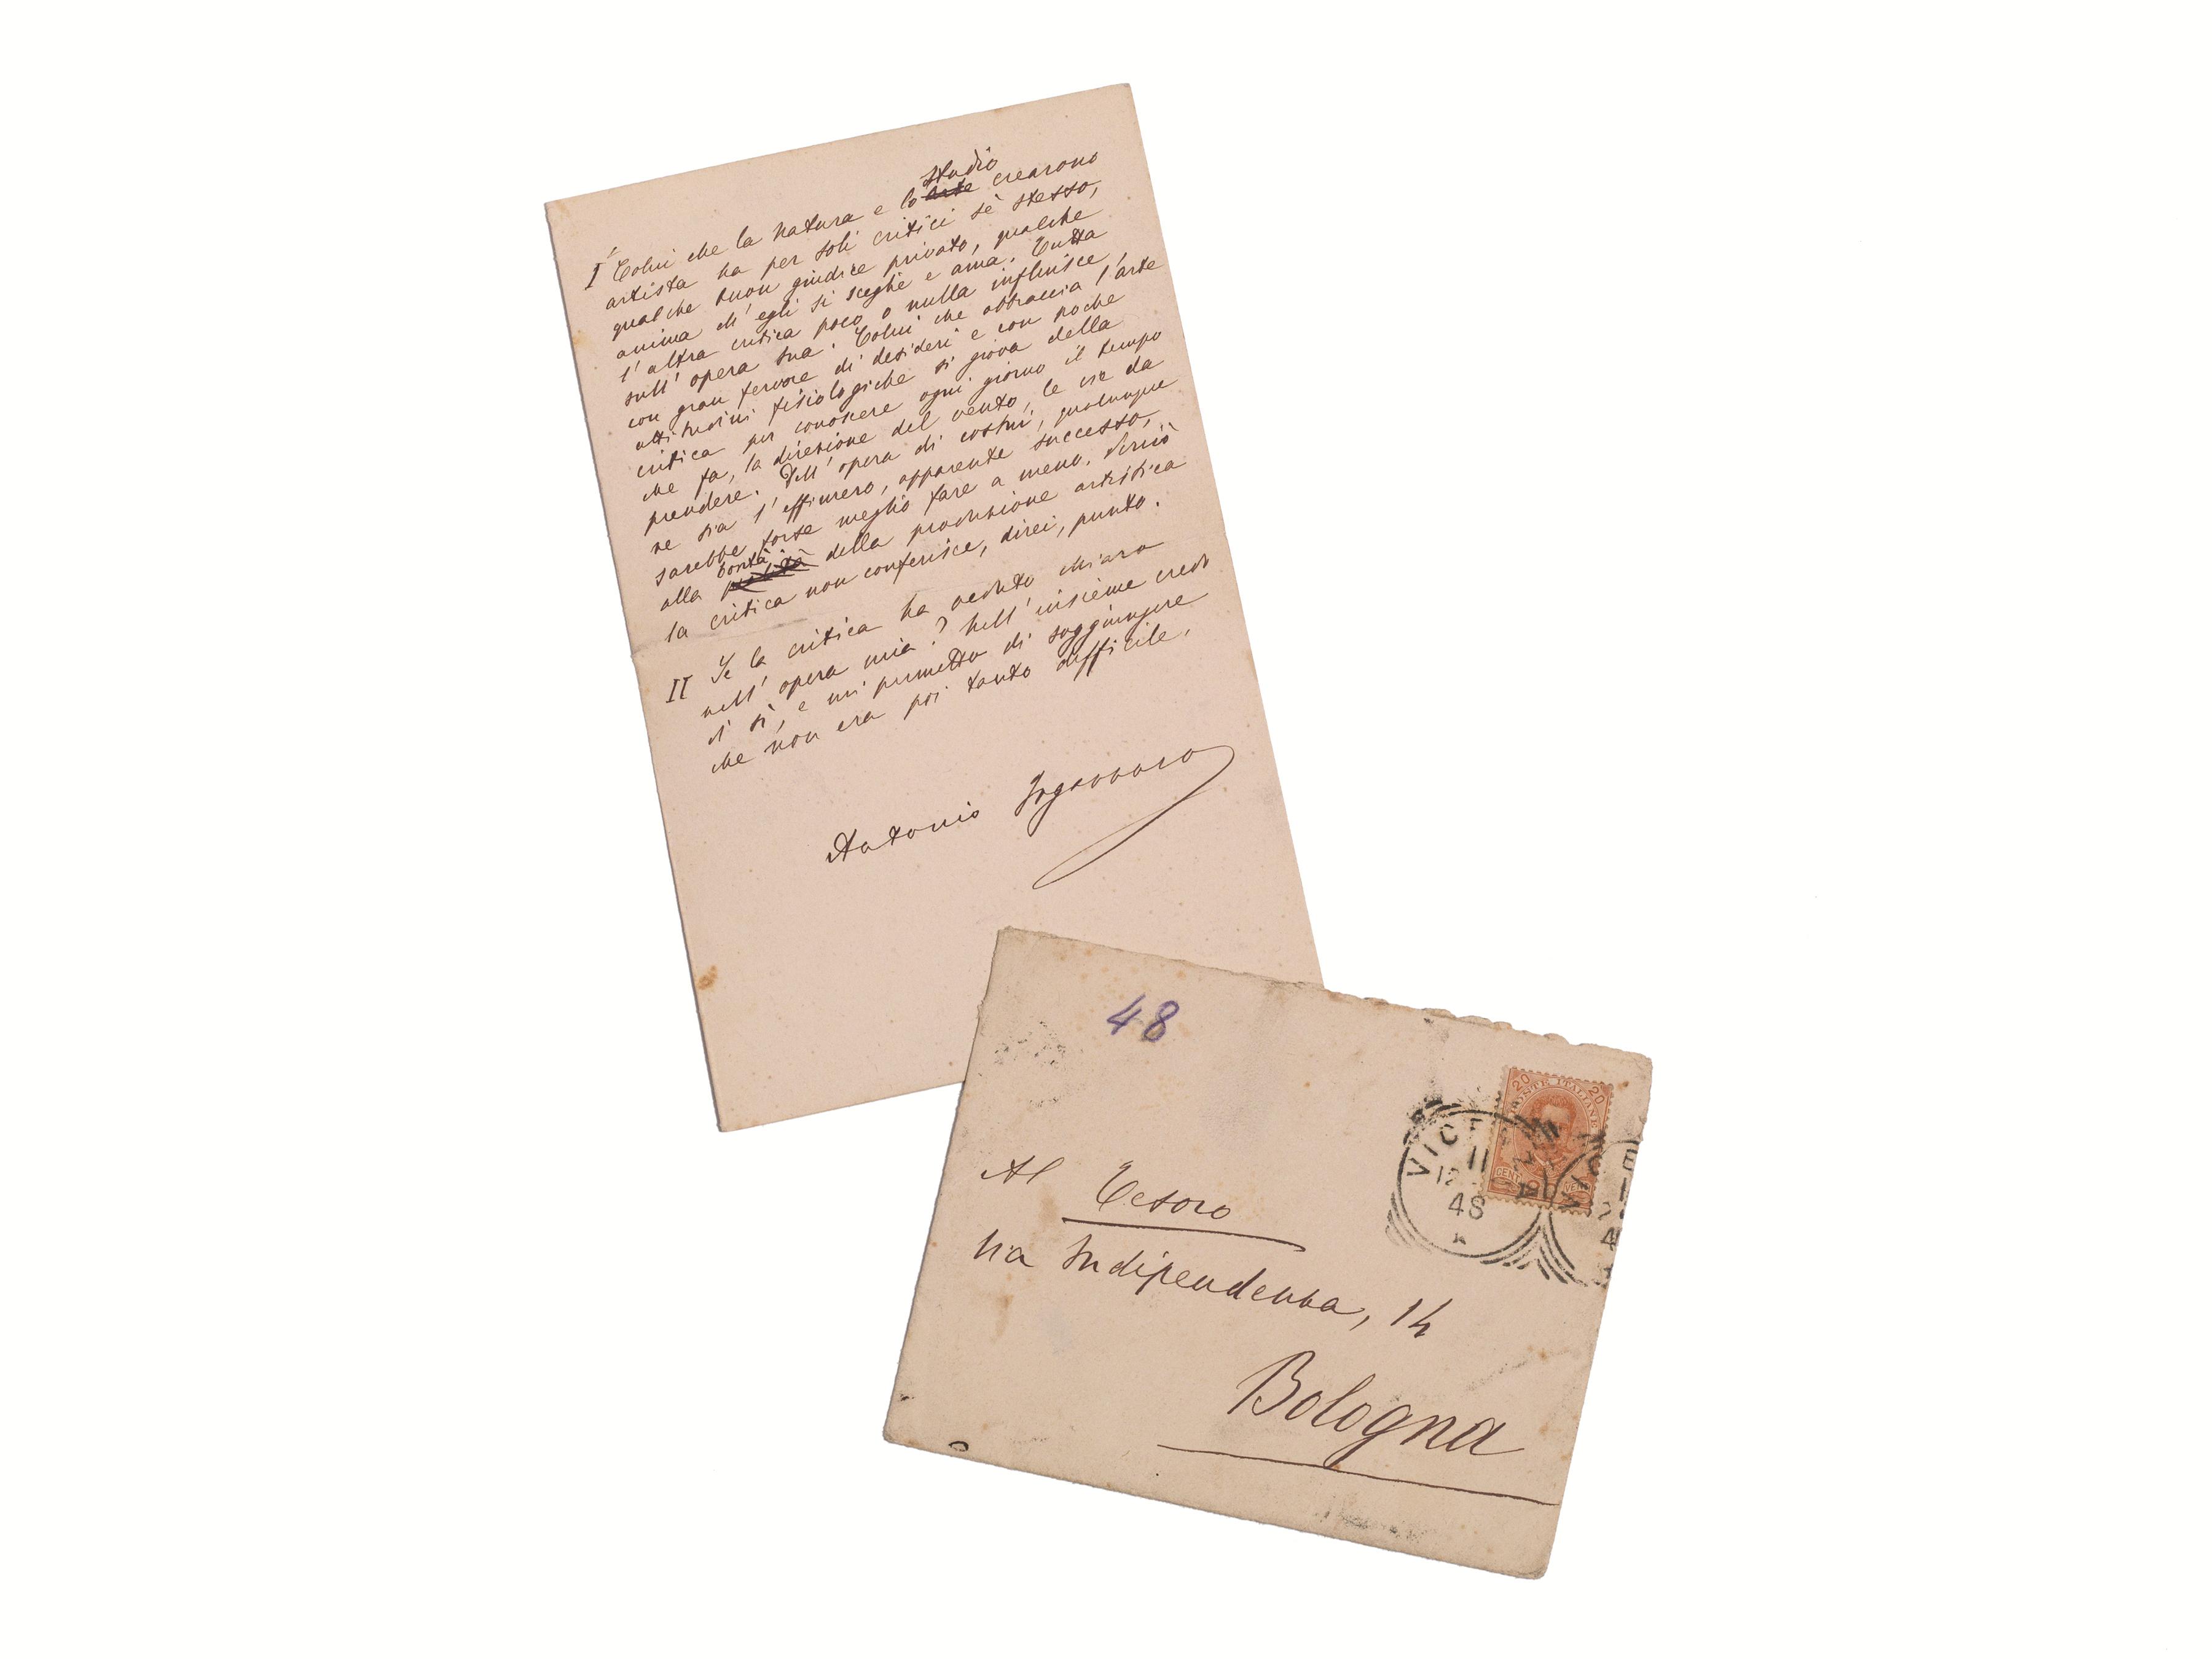 studio
I Colui che la natura e lo arte crearono
artista ha per soli critici sè stesso,
qualche buon giudice privato, qualche
anima ch'egli si sceglie e ama. Tutta
l'altra critica poco o nulla influisce
sull'opera sua. Colui che abbraccia l'arte
con gran fervore di desideri e con poche
attitudini fisiologiche si giova della
critica per conoscere ogni giorno il tempo
che fa, la direzione del vento, le vie da
prendere. Dell'opera di costui, qualunque
ne sia l'effimero, apparente successo,
sarebbe forse meglio fare a meno. Perciò
bontà
alla della produzione artistica
la critica non conferisce, direi, punto.
II Se la critica ha veduto chiaro
nell'opera mia? Nell'insieme credo
di sì, e mi permetto di soggiungere
che non era poi tanto difficile.
Antonio Fogazzaro
48
20 POSTE ITALIANE 20
CENT 20 VENTI
VICE
11
12
48
Al Tesoro
Via Indipendenza, 14
Bologna